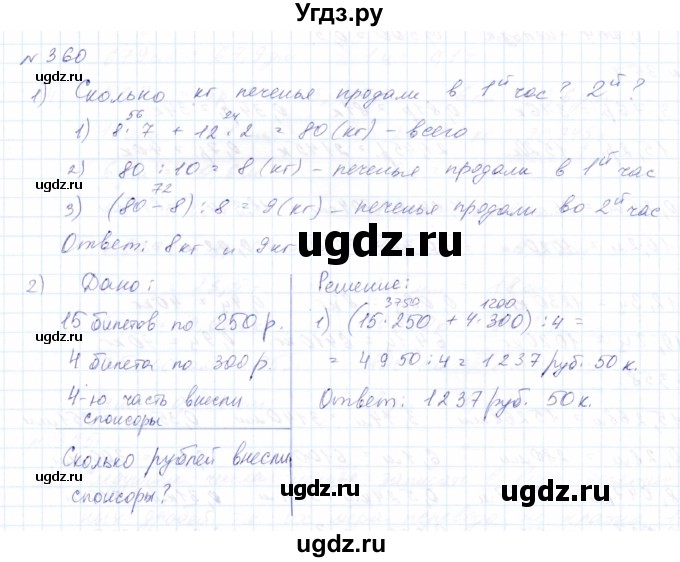 Угдз.ру
№ 360
1) Сколько кг печенья продали в 1й час? 2й?
56 24
1) 8·7 + 12·2 = 80 (кг) – всего
2) 80 : 10 = 8 (кг) – печенья продали в 1й час
72
3) (80 – 8) : 8 = 9 (кг) – печенья продали во 2й час
Ответ: 8кг и 9кг
2) Дано:
15 билетов по 250 р.
4 билета по 300 р.
4-ю часть внесли
спонсоры
Сколько рублей внесли
спонсоры?
Решение:
3750 1200
1) (15·250 + 4·300) : 4 =
= 4950 : 4 = 1237 руб. 50 к.
Ответ: 1237 руб. 50 к.
ugdz.ru
ugdz.ru
ugdz.ru
ugdz.ru
ugdz.ru
ugdz.ru
ugdz.ru
ugdz.ru
ugdz.ru
ugdz.ru
ugdz.ru